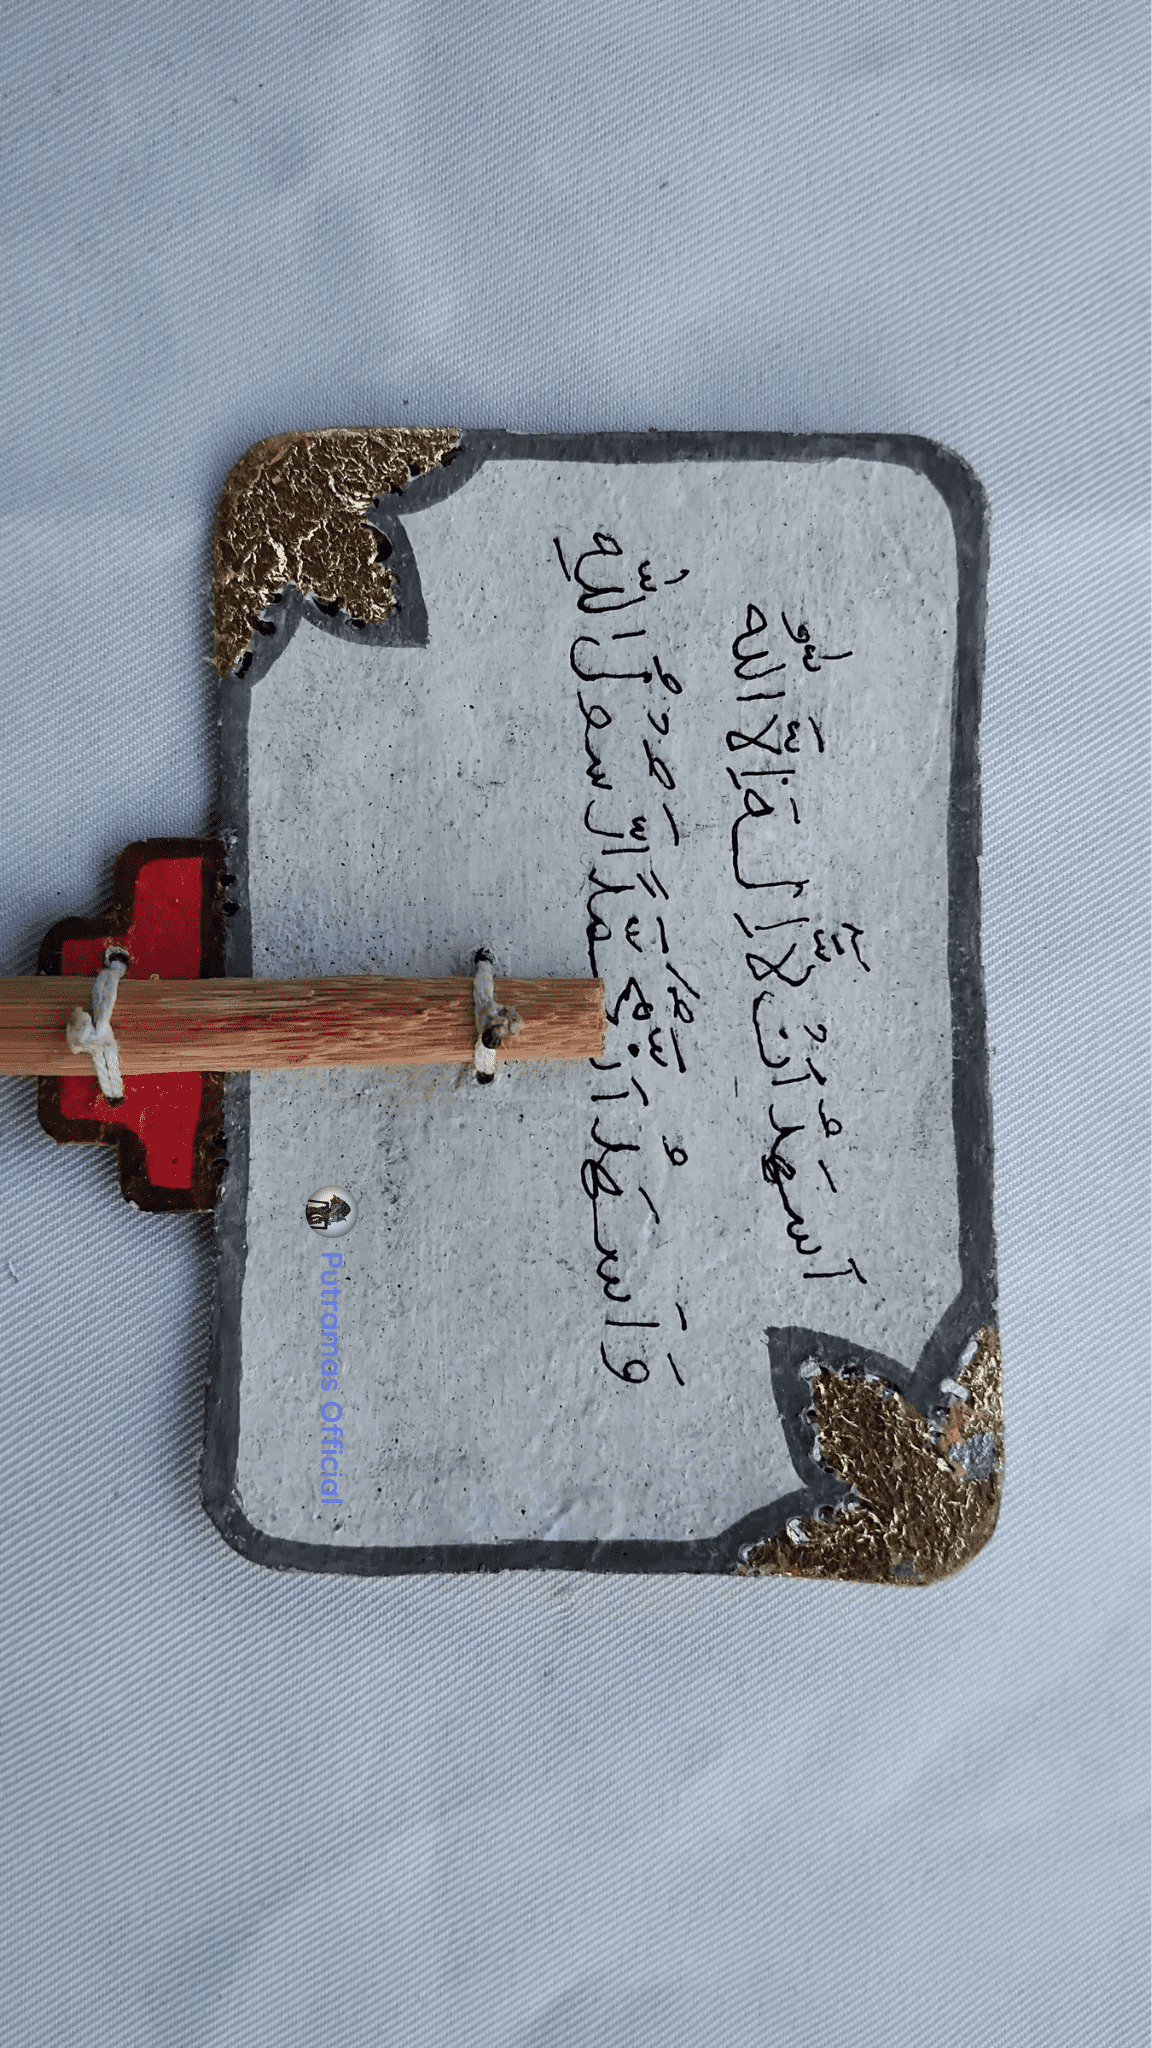 اَسهَدُ اَنْ لَّآ اِلهَ اِلَّا اللّٰهُ
وَاَسهَدُ اَنَّ مُحَمَّدًا الرَّسُولُ اللّٰهِ
Putramas Official